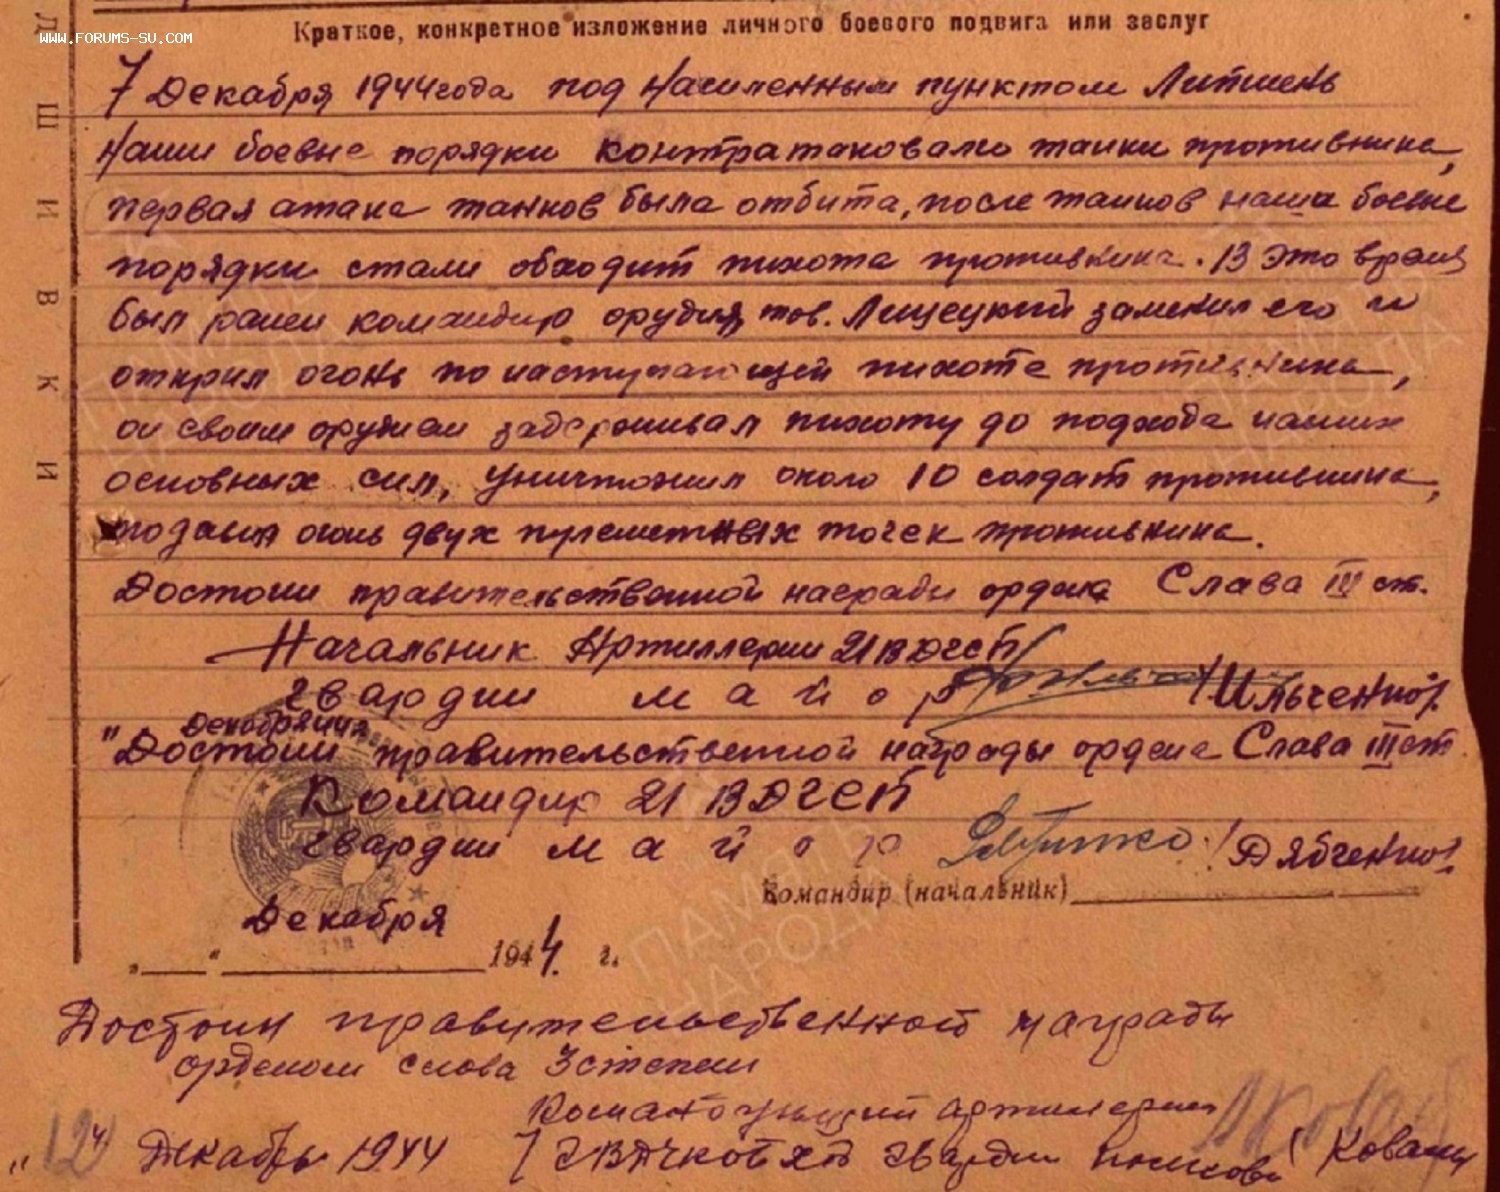 WWW.FORUMS-SU.COM
Краткое, конкретное изложение личного боевого подвига или заслуг
7 Декабря 1944 года под населенным пунктом Литмень
наши боевые порядки контратаковали танки противника,
первая атака танков была отбита, после танков наши боевые
порядки стали обходит пихота противника. В это время
был ранен командир орудия, тов. Лищецкий заменил его и
открыл огонь по наступающей пихоте противника,
он своим оружием задерживал пихоту до подхода наших
основных сил, уничтожил около 10 солдат противника,
подавил огонь двух пулеметных точек противника.
Достоин правительственной награды ордена Слава III ст.
Начальник Артиллерии 21 ВДГСП
гвардии майор /Ильченко/.
Декабря
"Достоин правительственной награды ордена Слава III ст.
Командир 21 ВДГСП
гвардии майор /Дябченко/.
Командир (начальник)
Декабря
„ “ 1944. г.
Достоин правительственной награды
орденом слова 3 степени
Командующий артиллерии
"12" Декабрь 1944 7 гвардии полковн (Коваль
ШИВКИ
ПАМЯТЬ НАРОДА